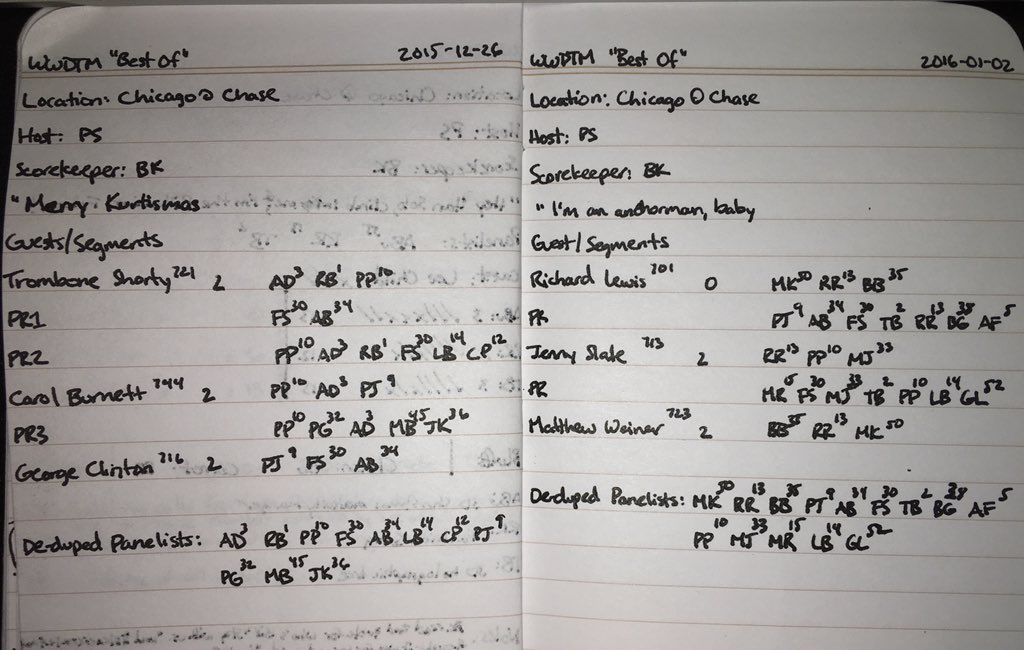 WWDTM "Best Of" 2015-12-26
Location: Chicago @ Chase
Host: PS
Scorekeeper: BK
"Merry Kurtismas
Guests/Segments
Trombone Shorty 721 2 AD3 RB1 PP10
PR1 FS30 AB34
PR2 PP10 AD3 RB1 FS30 LB14 CP12
Carol Burnett 744 2 PP10 AD3 PJ9
PR3 PP10 PG32 AD3 MB45 JK36
George Clinton 716 2 PJ9 FS30 AB34
De-duped Panelists: AD3 RB1 PP10 FS30 AB34 LB14 CP12 PJ9
PG32 MB45 JK36
WWDTM "Best Of" 2016-01-02
Location: Chicago @ Chase
Host: PS
Scorekeeper: BK
"I'm an anchorman, baby
Guest/Segments
Richard Lewis 701 0 MK50 RR13 BB35
PR PJ9 AB34 FS30 TB2 RR13 BG38 AF5
Jenny Slate 713 2 RR13 PP10 MJ33
PR MR15 FS30 MJ33 TB2 PP10 LB14 GL52
Matthew Weiner 723 2 BB35 RR13 MK50
De-duped Panelists: MK50 RR13 BB35 PJ9 AB34 FS30 TB2 BG38 AF5
PP10 MJ33 MR15 LB14 GL52